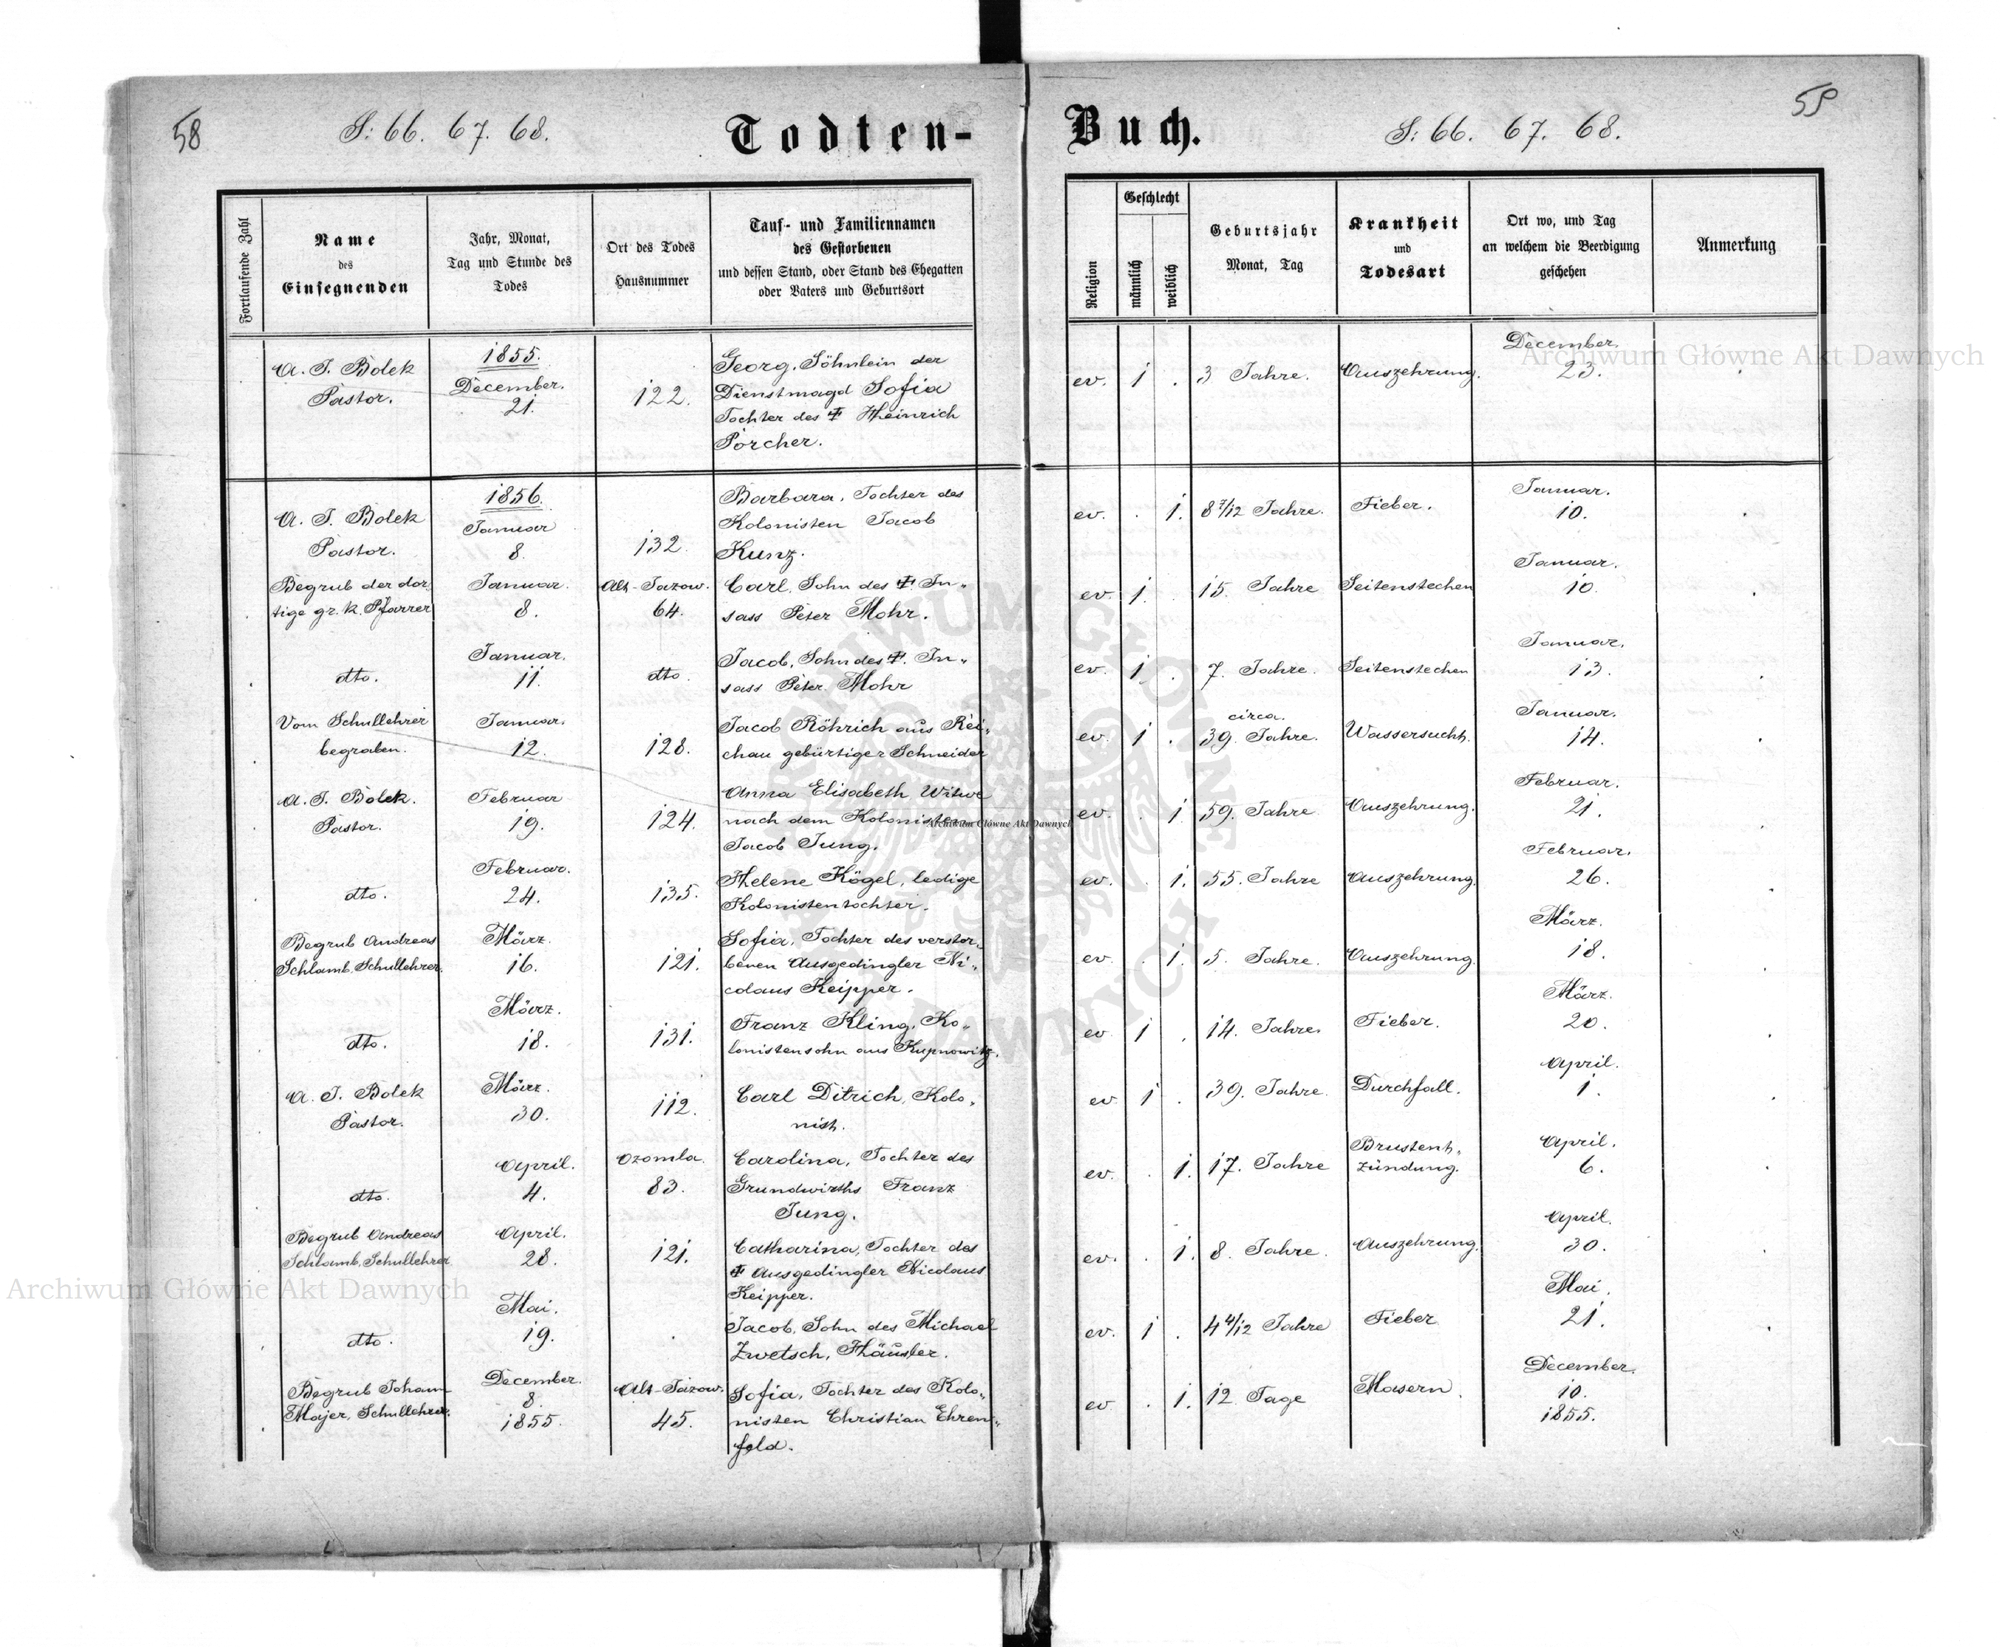 58
S: 66. 67. 68.
Todten-
Buch.
S: 66. 67. 68.
59
Fortlaufende Zahl
Name
des
Einsegnenden
Jahr, Monat,
Tag und Stunde des
Todes
Ort des Todes
Hausnummer
Tauf- und Familiennamen
des Gestorbenen
und dessen Stand, oder Stand des Ehegatten
oder Vaters und Geburtsort
Religion
Geschlecht
männlich
weiblich
Geburtsjahr
Monat, Tag
Krankheit
und
Todesart
Ort wo, und Tag
an welchem die Beerdigung
geschehen
Anmerkung
A. J. Bolek
Pastor.
1855.
December.
21.
122.
Georg, Söhnlein der
Dienstmagd Sofia
Tochter des ✝ Heinrich
Porcher.
ev. 1 . 3 Jahre. Auszehrung.
December.
23.
A. J. Bolek
Pastor.
1856.
Januar
8.
132.
Barbara, Tochter des
Kolonisten Jacob
Kunz.
ev. . 1. 8 7/12 Jahre. Fieber.
Januar.
10.
Begrub der dor-
tige gr. k. Pfarrer
Januar.
8.
Alt-Jazow.
64.
Carl, Sohn des ✝. In-
sass Peter Mohr.
ev. 1. . 15 Jahre Seitenstechen
Januar.
10.
dto.
Januar.
11.
dto.
Jacob, Sohn des ✝. In-
sass Peter Mohr
ev. 1. . 7. Jahre. Seitenstechen
Januar.
13.
Vom Schullehrer
begraben.
Januar.
12.
128.
Jacob Röhrich aus Rei-
chau gebürtiger Schneider
ev. 1 .
circa.
39. Jahre. Wassersucht.
Januar.
14.
A. J. Bolek.
Pastor.
Februar
19.
124.
Anna Elisabeth Witwe
nach dem Kolonisten
Jacob Jung.
ev. . 1. 59. Jahre Auszehrung.
Februar.
21.
dto.
Februar.
24.
135.
Helene Kögel, ledige
Kolonistentochter.
ev. . 1. 55. Jahre Auszehrung.
Februar.
26.
Begrub Andreas
Schlamb, Schullehrer.
März.
16.
121.
Sofia, Tochter des verstor-
benen Ausgedingler Ni-
colaus Keipper.
ev. . 1. 5. Jahre. Auszehrung.
März.
18.
dto.
März.
18.
131.
Franz Kling, Ko-
lonistensohn aus Kupnowitz.
ev. 1 . 14. Jahre. Fieber.
März.
20.
A. J. Bolek
Pastor.
März.
30.
112.
Carl Ditrich, Kolo-
nist.
ev. 1 . 39. Jahre. Durchfall.
April.
1.
dto.
April.
4.
Ozomla.
83.
Carolina, Tochter des
Grundwirths Franz
Jung.
ev. . 1. 17. Jahre
Brustent-
zündung.
April.
6.
Begrub Andreas
Schlamb, Schullehrer
April.
28.
121.
Catharina, Tochter des
✝ Ausgedingler Nicolaus
Keipper.
ev. . 1. 8. Jahre. Auszehrung.
April.
30.
dto.
Mai.
19.
.
Jacob, Sohn des Michael
Zwetsch, Häusler.
ev. 1 . 4 4/12 Jahre Fieber
Mai.
21.
Begrub Johann
Majer, Schullehrer.
December.
8.
1855.
Alt-Jazow.
45.
Sofia, Tochter des Kolo-
nisten Christian Ehren-
feld.
ev. . 1. 12 Tage Masern.
December.
10.
1855.
Archiwum Główne Akt Dawnych
Archiwum Główne Akt Dawnych
Archiwum Główne Akt Dawnych
ARCHIWUM GŁÓWNE AKT DAWNYCH